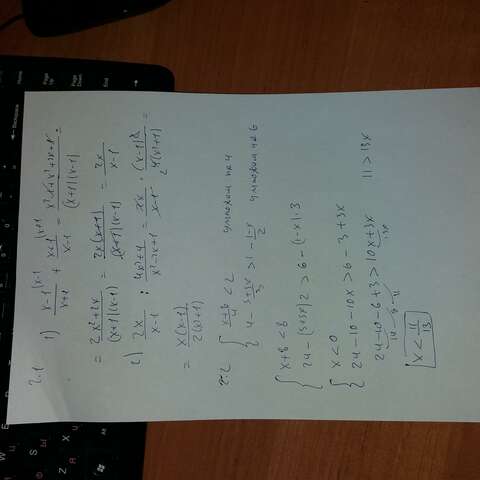 2.1 1) (x-1)/(x+1) ^(x-1 + (x+1)/(x-1) ^(x+1 = (x²-x-x²+2x+1)/((x+1)(x-1)) =
= (2x²+2x)/((x+1)(x-1)) = 2x(x+1)/((x+1)(x-1)) = 2x/(x-1)
2) 2x/(x-1) : (4x²+4)/(x²-2x+1) = 2x/(x-1) · (x-1)²/(4(x²+1)) =
= x(x-1)/(2(x²+1))
2.2 { (x+8)/4 < 2 умножим на 4
4 - (5+5x)/3 > 1 - (1-x)/2 умножим на 6
{ x+8 < 8
24 - (5+5x)2 > 6 - (1-x)·3
{ x < 0
24 - 10 - 10x > 6 - 3 + 3x
24 - 10 - 6 + 3 > 10x + 3x 11 > 13x
x < 11/13